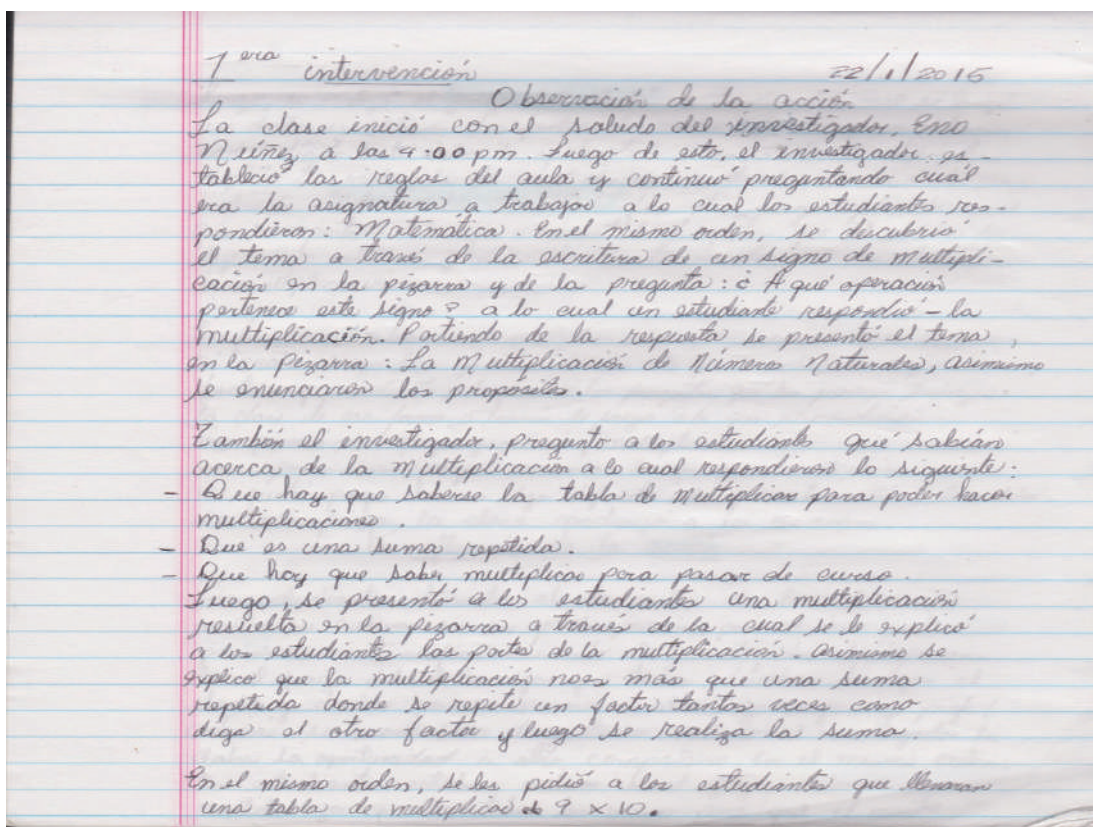 1era intervención 22/1/2015
Observación de la acción
La clase inició con el saludo del investigador, Eno
Núñez a las 4:00 pm. Luego de esto, el investigador es-
tableció las reglas del aula y continuó preguntando cuál
era la asignatura a trabajar a lo cual los estudiantes res-
pondieron: Matemática. En el mismo orden, se descubrió
el tema a través de la escritura de un signo de multipli-
cación en la pizarra y de la pregunta: ¿A qué operación
pertenece este signo? a lo cual un estudiante respondió - la
multiplicación. Partiendo de la respuesta se presentó el tema,
en la pizarra: La Multiplicación de Números Naturales, asimismo
se enunciaron los propósitos.
También el investigador, pregunto a los estudiantes qué sabían
acerca de la multiplicación a lo cual respondieron lo siguiente:
- Que hay que saberse la tabla de multiplicar para poder hacer
multiplicaciones.
- Que es una suma repetida.
- Que hay que saber multiplicar para pasar de curso.
Luego, se presentó a los estudiantes una multiplicación
resuelta en la pizarra a través de la cual se le explicó
a los estudiantes las partes de la multiplicación. Asimismo se
explico que la multiplicación no es más que una suma
repetida donde se repite un factor tantas veces como
diga el otro factor y luego se realiza la suma.
En el mismo orden, se les pidió a los estudiantes que llenaran
una tabla de multiplicar 9 x 10.